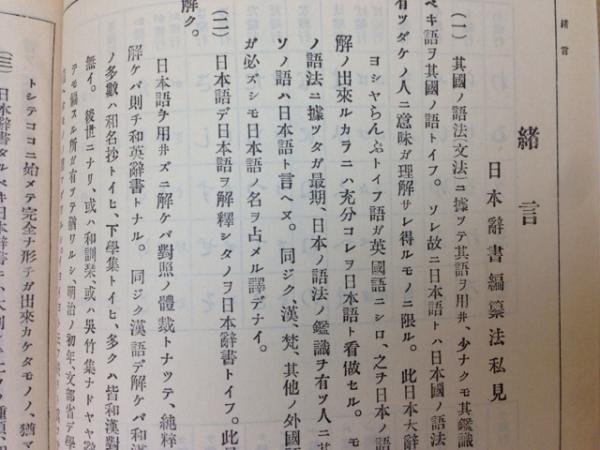 緒言
緒言
日本辭書編纂法私見
(一) 其國ノ語法(文法)ニ據ツテ其語ヲ用井、少ナクモ其鑑識
ベキ語ヲ其國ノ語トイフ。ソレ故ニ日本語トハ日本國ノ語法
有ツダケノ人ニ意味ガ理解サレ得ルモノニ限ル。此日本大辭
ヨシヤらんぷトイフ語ガ英國語ニシロ、之ヲ日本ノ語
解ノ出來ルカラニハ充分コレヲ日本語ト看做セル。モ
ノ語法ニ據ツタガ最期、日本ノ語法ノ鑑識チ有ツ人ニ其
ソノ語ハ日本語ト言ヘヌ。同ジク、漢、梵、其他ノ外國語
ガ必ズシモ日本語ノ名ヲ占メル譯デナイ。
(二) 日本語デ日本語ヲ解釋シタノヲ日本辭書トイフ。此
解ク。
日本語ヲ用井ズニ解ケバ對照ノ體裁トナツテ、純粹
解ケバ則チ和英辭書トナル。同ジク漢語デ解ケバ和漢
ノ多數ハ和名抄トイヒ、下學集トイヒ、多クハ皆和漢對
無イ。後世ニナリ、或ハ和訓栞、或ハ呉竹集ナドヤヽ
テモ偏スル所ガ有ツテ猶ワルシ(明治ノ初年、文部省デ
トシテココニ始メテ完全ナ形チガ出來カケタモノノ、猶マ
(三) 日本辭書タルベキ日本辭書ニハ大別